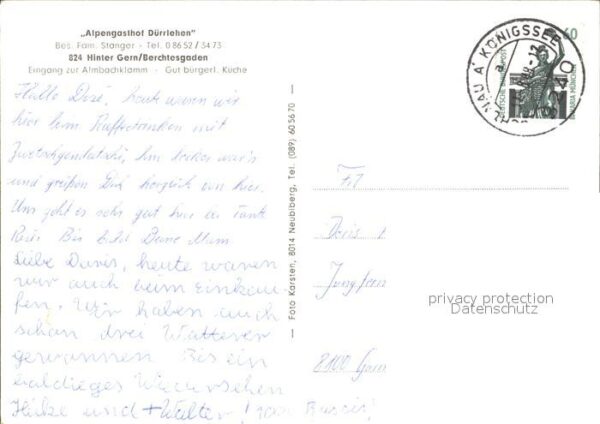 „Alpengasthof Dürrlehen"
Bes. Fam. Stanger - Tel. 0 86 52 / 34 73
824 Hinter Gern/Berchtesgaden
Eingang zur Almbachklamm - Gut bürgerl. Küche
Hallo Dosi, heute waren wir
hier beim Kaffeetrinken mit
Zwetschgendatschi, hm lecker war's
und grüßen Dich herzlich von hier.
Uns geht es sehr gut hier bei Tante
Bis bald Deine Mam
Liebe Doris, heute waren
wir auch beim Einkau-
fen. Wir haben auch
schon drei Watterer
gewonnen Bis ein
baldiges Wiedersehen
Heike und + Walter! 1000 Bussis!
Foto Karsten, 8014 Neubiberg, Tel. (089) 60 56 70
SCHÖNAU A. KÖNIGSSEE
60
DEUTSCHE BUNDESPOST
BAVARIA MÜNCHEN
Doris
Jungfern
8100 Garm
privacy protection
Datenschutz